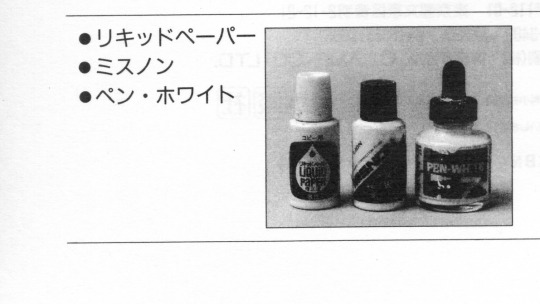 ●リキッドペーパー
●ミスノン
●ペン・ホワイト
コピー用
LIQUID
PAPER
PEN-WHITE